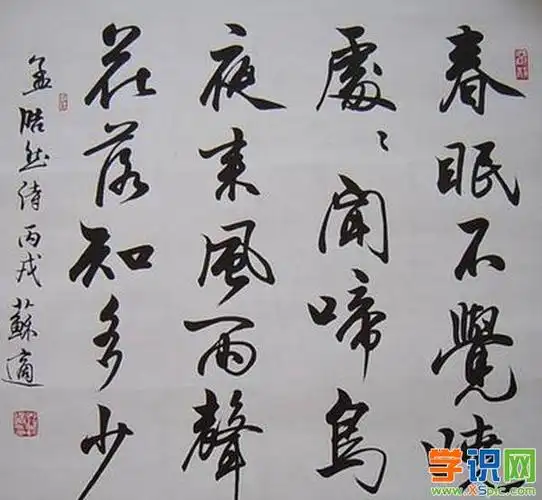 春眠不覺曉
處々聞啼鳥
夜来風雨聲
花落知多少
孟浩然诗丙戌蘇適
学识网
www.XSpic.com